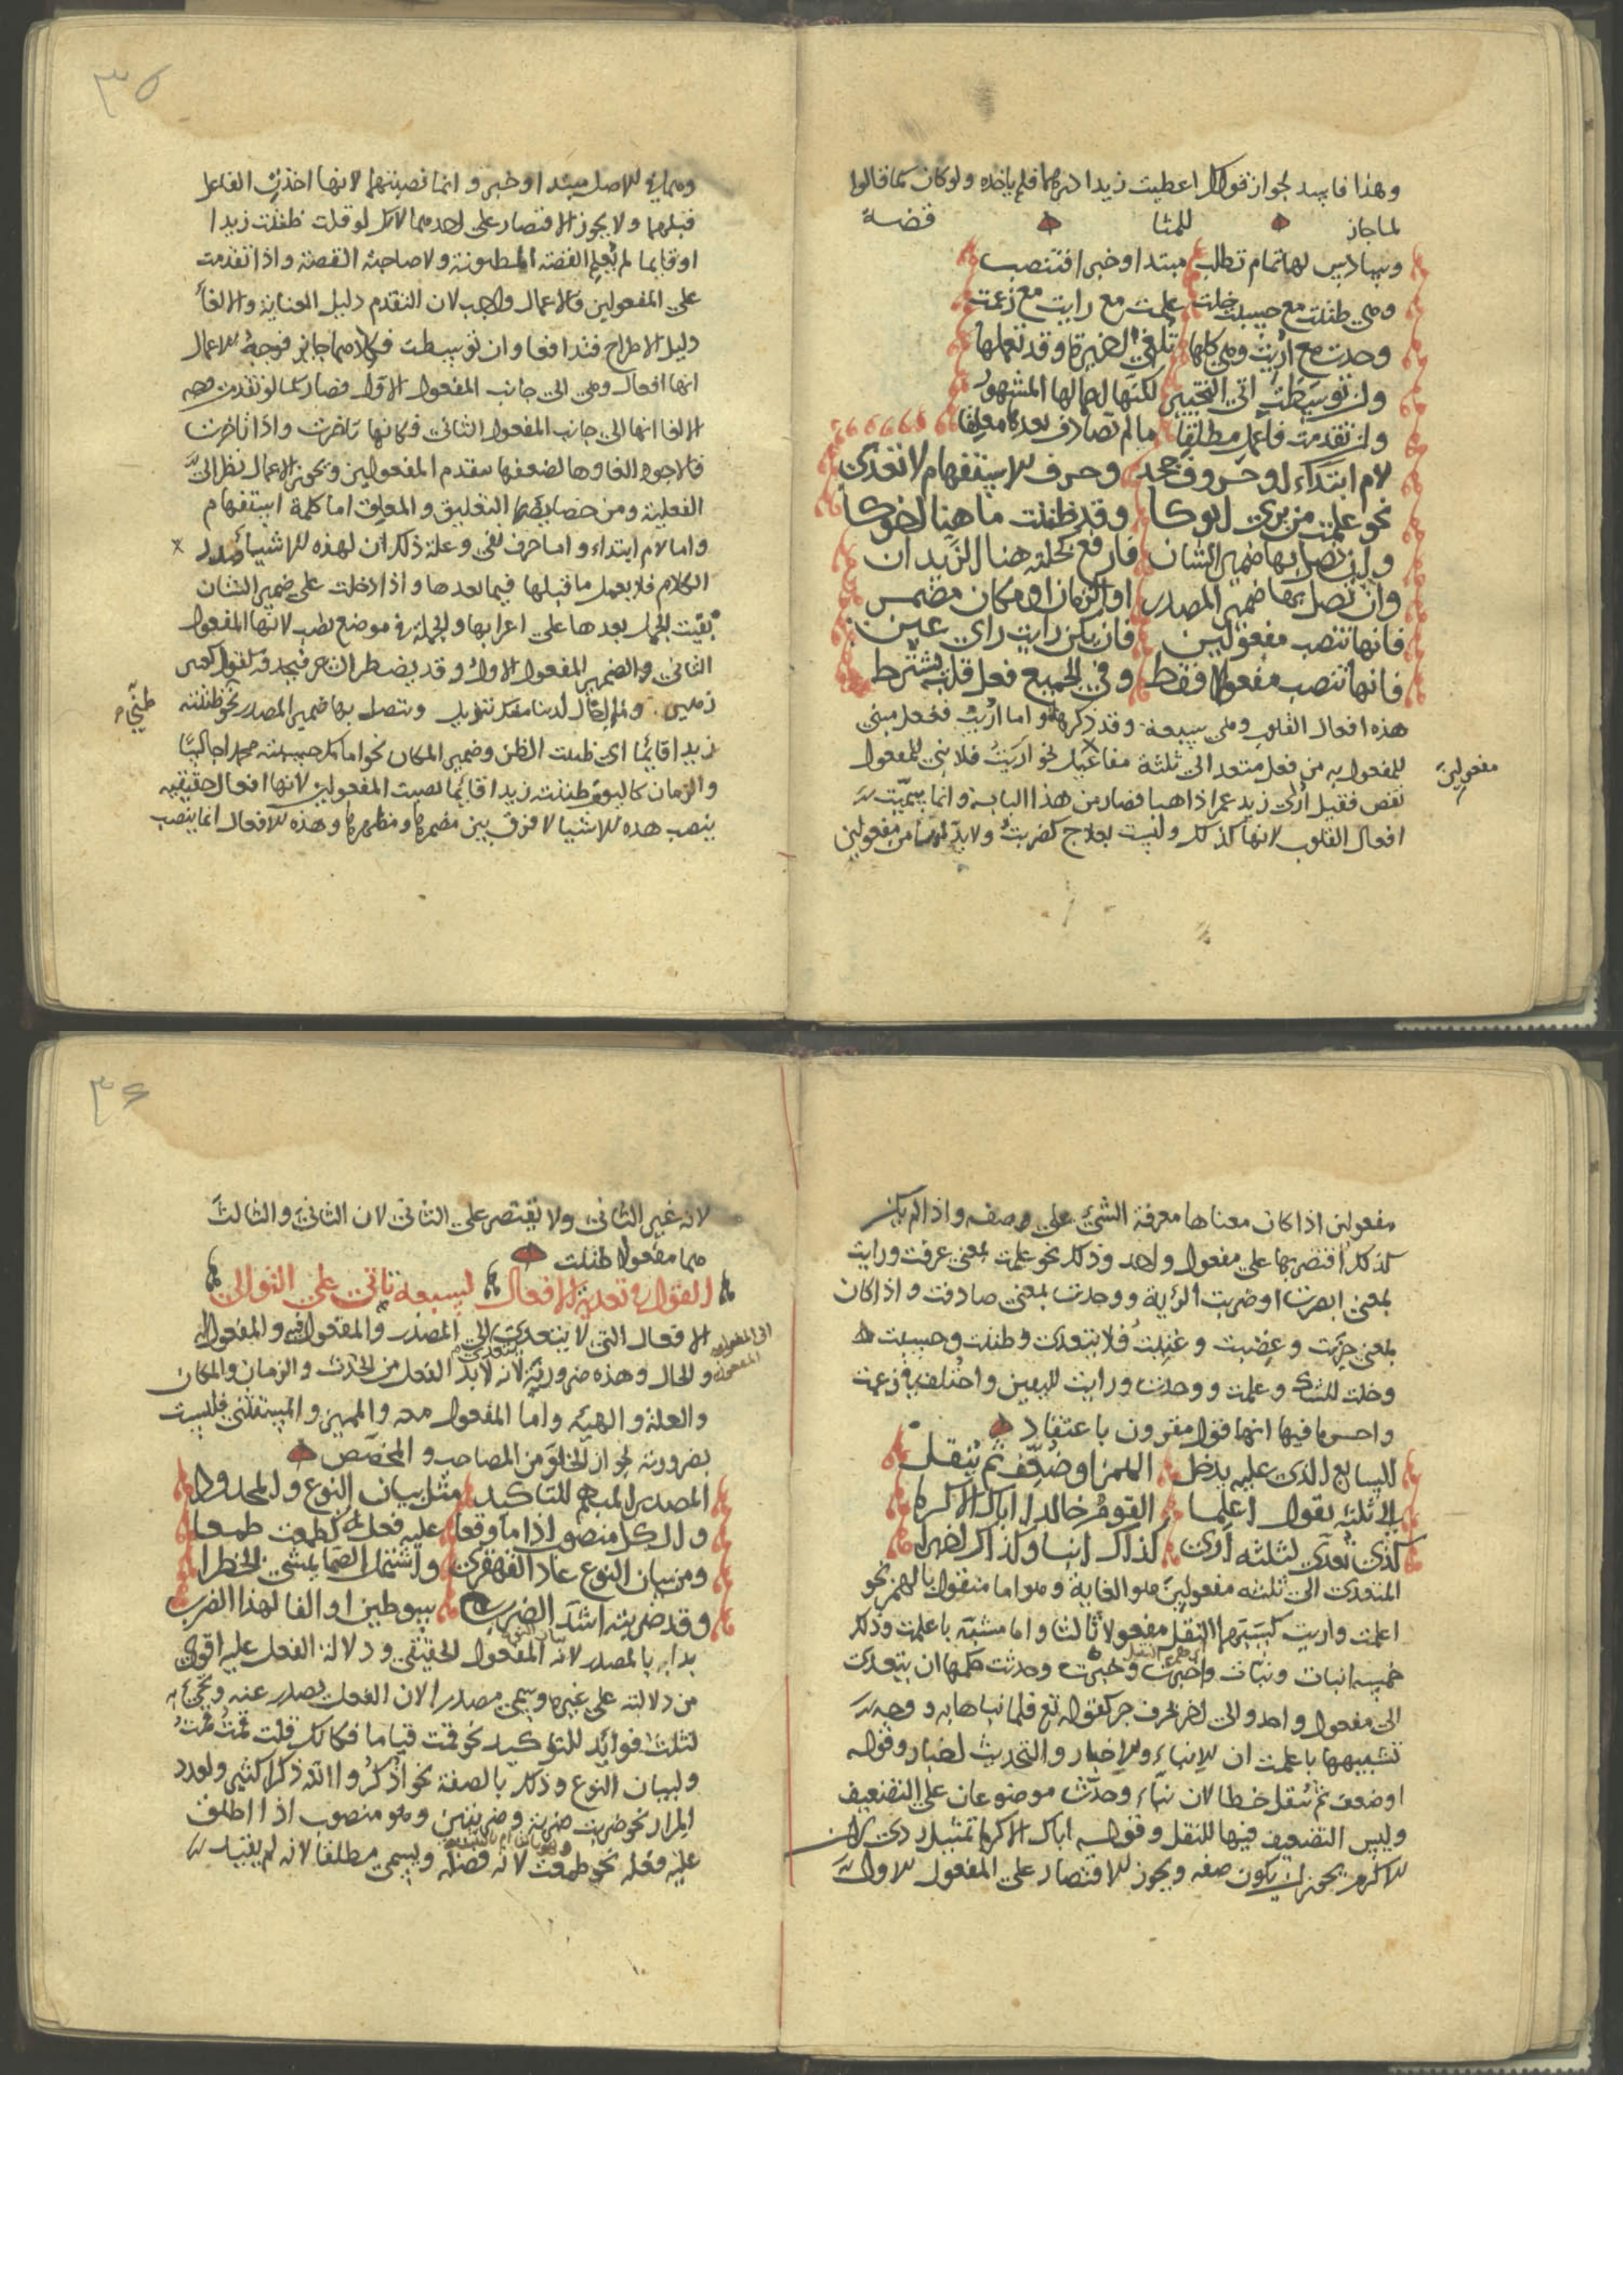 وهذا فاسد لجواز قولك اعطيت زيدا درهما فلم ياخذه ولو كان كما قالوا
لما جاز للمثا قضه
وسادس لها تمام تطلب مبتدا وخبرا فتنصب
وهي ظننت مع حسبت خلت علمت مع رايت مع زعمت
وجدت مع اريت وهي كلها تلغى اخيرة وقد تعملها
وان توسطت اتى التخيير لكنها اعمالها المشهور
وان تقدمت فاعمل مطلقا ما لم تصادف بعده معلقا
لام ابتداء او حروف جحد وحرف الاستفهام لا تعدى
نحو علمت من يرى ابوكا وقد ظننت ما هنا اخوكا
وان تصل بها ضمير الشان فارفع كخلته هنا الزيدان
وان تصل بها ضمير المصدر او الزمان او مكان مضمر
فانها تنصب مفعولين فان يكن رايت راي عين
فانها تنصب مفعولا فقط وفي الجميع فعل قلب يشترط
هذه افعال القلوب وهي سبعة وقد ذكرها و اما اريت ففعل مبني
للمفعول به من فعل متعد الى ثلثة مفاعيل نحو اريت فلا بني للمفعول
مفعولين
نقص فقيل ارى زيد عمرا ذاهبا فصار من هذا الباب وانما سميت
افعال القلوب لانها كذلك وليست بعلاج كضربت ولا بد لها من مفعولين
٣٥
وهما في الاصل مبتدا وخبر و انما نصبتهما لانها اخذت الفاعل
قبلهما ولا يجوز الاقتصار على احدهما لانك لو قلت ظننت زيدا
او قايما لم تعلم القصة المظنونة ولا صاحب القصة واذا تقدمت
على المفعولين فالاعمال واجب لان التقدم دليل العناية والالغاء
دليل الاطراح فتدافعا وان توسطت فكلاهما جايز فوجه الاعمال
انها افعال وهي الى جانب المفعول الاول فصار كما لو تقدمت وجه
الالغا انها الى جانب المفعول الثاني فكانها تاخرت واذا تاخرت
فالاجود الغاوها لضعفها بتقدم المفعولين ويجوز الاعمال نظرا الى
الفعلية ومن خصايصها التعليق والمعلق اما كلمة استفهام
واما لام ابتداء و اما حرف نفي وعلة ذلك ان لهذه الاشيا صدر
الكلام فلا يعمل ما قبلها فيما بعدها و اذا دخلت على ضمير الشان
بقيت الجمل بعدها على اعرابها والجملة في موضع نصب لانها المفعول
الثاني والضمير المفعول الاول وقد يضطر الشاعر فيحذفه كقول كعب بن
زهير وما اخال لدينا منك تنويل وتتصل بها ضمير المصدر نحو ظننته
زيدا قايما اي ظننت الظن وضمير المكان نحو امامك حسبته محمدا جالسا
والزمان كاليوم ظننته زيدا قايما نصبت المفعولين لانها افعال حقيقية
ينصب هذه الاشيا لا فرق بين مضمرها ومظهرها وهذه الافعال انما ينصب
مفعولين اذا كان معناها معرفة الشيء على وصف واذا لم يكن
كذلك اقتصر بها على مفعول واحد وذلك نحو علمت بمعنى عرفت ورايت
بمعنى ابصرت او ضربت الرئة ووجدت بمعنى صادفت واذا كان
بمعنى حزنت وغضبت وغنيت فلا يتعدى وظننت وحسبت
وخلت للشك وعلمت ووجدت ورايت لليقين واختلف في زعمت
واحسن ما فيها انها قول مقرون باعتقاد
السابع الذي عليه يدخل الهمز او ضعف ثم ينقل
الى ثلثة يقول اعلما القوم خالدا اباك الاكرما
كذي تعدى لثلثة ارى كذاك انبا وكذاك اخبرا
المتعدي الى ثلثة مفعولين هو الغاية وهو اما منقول بالهمز نحو
اعلمت واريت كسبتهما النقل مفعولا ثالثا واما مشبه باعلمت وذلك
خمسة انبات ونبات واخبرت وخبرت وحدثت حكمها ان يتعدى
الى مفعول واحد والى اخر بحرف جر كقوله تع فلما نباها به و وجه
تشبيهها باعلمت ان الانباء والاخبار والتحديث اخبار وقوله
او ضعف ثم ينقل خطا لان نباء وحدث موضوعان على التضعيف
وليس التضعيف فيها للنقل وقوله اباك الاكرما تمثيل ردي لان
الاكرم يجوز ان يكون صفه ويجوز الاقتصار على المفعول الاول
٣٦
لانه غير الثاني ولا يقتصر على الثاني لان الثاني والثالث
هما مفعولا ظننت
القول في تعدية الافعال لسبعة تاتي على التوالي
الافعال التي لا يتعدى الى المصدر والمفعول فيه والمفعول له
والحال وهذه ضرورية لانه لا بد الفعل من الحدث والزمان والمكان
والعلة والهيئة واما المفعول معه والمميز والمستثنى فليست
بضرورية لجواز الخلو من المصاحب والمخصص
المصدر المبهم للتاكيد مثل بيان النوع والمحدود
والكل منصوب اذا ما وقعا عليه فعله كطمعت طمعا
ومن بيان النوع عاد القهقرى واشتمل الصما يمشي الخطرا
وقد ضربته اشد الضرب سوطين او الفا لهذا الضرب
بدا بالمصدر لانه المفعول الحقيقي ودلالة الفعل عليه اقوى
من دلالته على غيره وسمي مصدرا لان الفعل يصدر عنه ويجيء
لثلث فوائد للتوكيد نحو قمت قياما فكانك قلت قمت قمت
ولبيان النوع وذلك بالصفة نحو اذكروا الله ذكرا كثيرا ولعدد
المرار نحو ضربت ضربة وضربتين وهو منصوب اذا اطلق
عليه فعله نحو طمعت لانه فضلة ويسمى مطلقا لانه لم يقيد